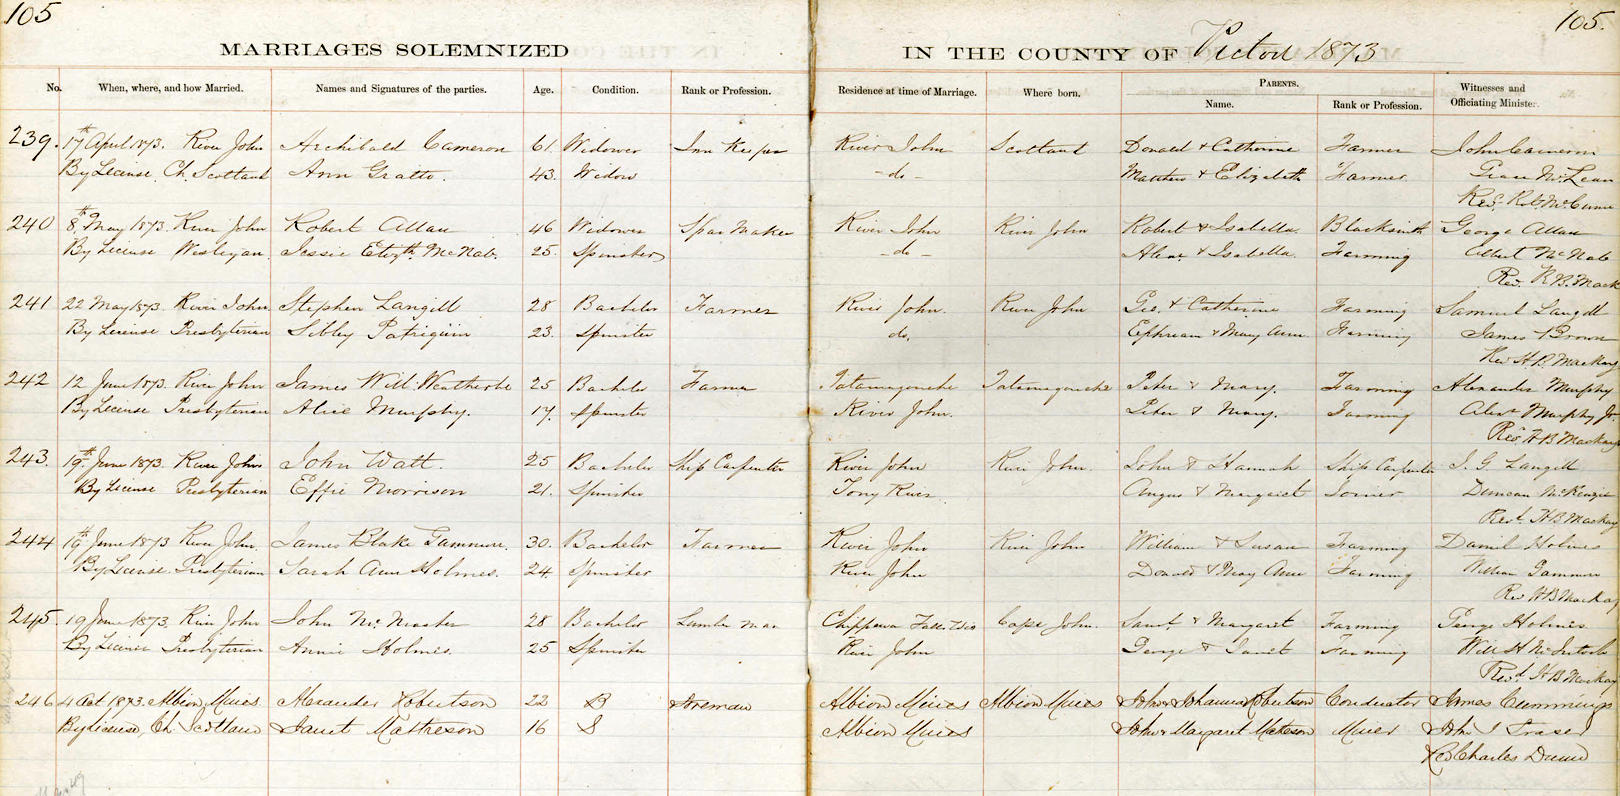 105
105.
MARRIAGES SOLEMNIZED
IN THE COUNTY OF Pictou 1873
No. When, where, and how Married. Names and Signatures of the parties. Age. Condition. Rank or Profession. Residence at time of Marriage. Where born. PARENTS. Witnesses and
Name. Rank or Profession. Officiating Minister.
239. 17th April 1873. River John Archibald Cameron 61. Widower Inn Keeper River John Scotland Donald & Catherine Farmer John Cameron
By License Ch. Scotland Ann Gratto. 43. Widow - do - Matthew & Elizabeth Farmer Mc Lean
Rev.
240 8th May 1873. River John Robert Allan 46 Widower Spar Maker River John River John Robert & Isabella Blacksmith George Allan
By License Wesleyan. Jessie Elizth. McNab. 25. Spinster - do - Alexr & Isabella Farming Albert McNab
Rev.
241 22 May 1873. River John. Stephen Langill 28 Bachelor Farmer River John. River John Geo. & Catherine Farming Samuel Langill
By License Presbyterian Sibley Patriquin 23. Spinster do. Ephream & Mary Ann. Farming James Brown
Rev H.B. Mackay
242 12 June 1873. River John James Will. Weatherbe 25 Bachelor Farmer Tatamagouche Tatamagouche Peter & Mary. Farming Alexander Murphy
By License Presbyterian Alice Murphy. 17. Spinster River John. Peter & Mary. Farming Alexr Murphy Jr.
Rev. H B Mackay
243. 19th June 1873. River John John Watt. 25 Bachelor Ship Carpenter River John River John. John & Hannah Ship Carpenter J. G. Langill
By License Presbyterian Effie Morrison 21. Spinster Tony River. Angus & Margaret Duncan McKenzie
Revd. H B Mackay
244 19th June 1873 River John. James Blake Gammon. 30. Bachelor Farmer River John River John William & Susan Farming Daniel Holmes
By License Presbyterian Sarah Ann Holmes. 24. Spinster River John Donald & Mary Ann Farming William Gammon
Rev H B Mackay
245 19 June 1873 River John John McMaster 28 Bachelor Lumber man Chippewa Falls Wis Cape John. Saml. & Margaret Farming George Holmes.
By License Presbyterian Annie Holmes. 25 Spinster River John George & Janet Farming Will H McIntosh
Revd H B Mackay
246 4 Oct 1873 Albion Mines Alexander Robertson 22 B Foreman Albion Mines Albion Mines John & Johanna Robertson Conductor James Cummings
By license Ch. Scotland Janet Matheson 16 S Albion Mines John & Margaret Matheson Miner John J Fraser
Rev Charles